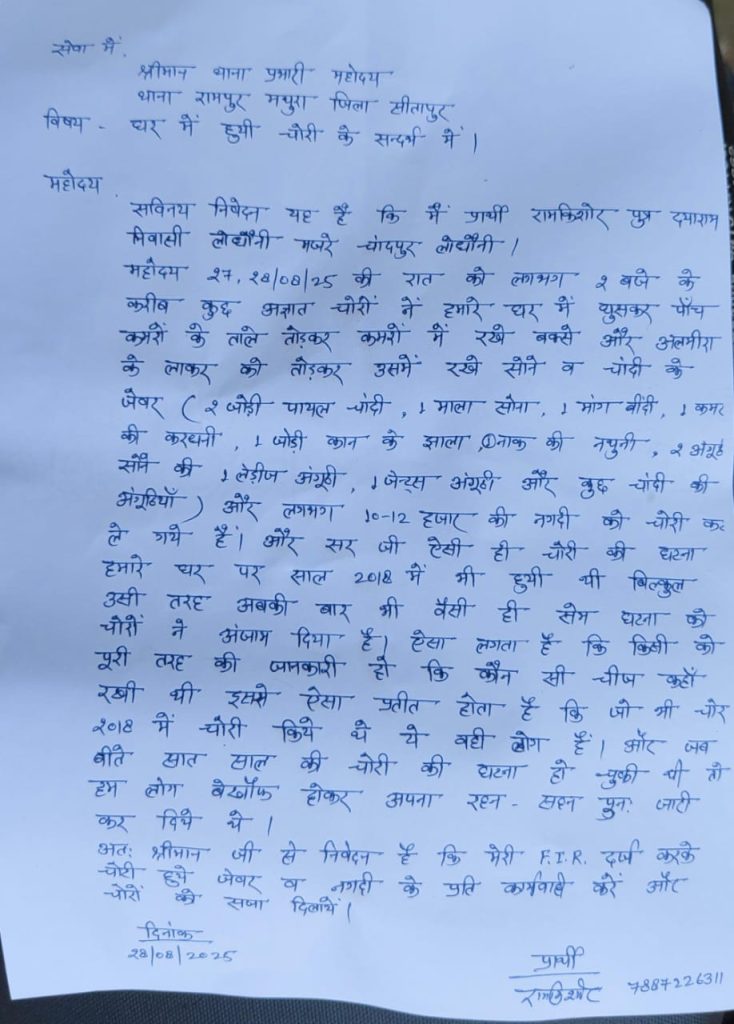 सेवा में,
श्रीमान थाना प्रभारी महोदय
थाना रामपुर मथुरा जिला सीतापुर
विषय - घर में हुयी चोरी के सन्दर्भ में।
महोदय,
सविनय निवेदन यह है कि मैं प्रार्थी रामकिशोर पुत्र दयाराम
निवासी लोधौनी मजरे चांदपुर लोधौनी।
महोदय 27, 28/08/25 की रात को लगभग 2 बजे के
करीब कुछ अज्ञात चोरों नें हमारे घर में घुसकर पाँच
कमरों के ताले तोड़कर कमरों में रखे बक्से और अलमीरा
के लाकर को तोड़कर उसमें रखे सोने व चांदी के
जेवर ( 2 जोड़ी पायल चांदी, 1 माला सोना, 1 मांग बींदी, 1 कमर
की करधनी, 1 जोड़ी कान के झाला, 1 नाक की नथुनी, 2 अंगूठी
सोने की 1 लेडीज अंगूठी, 1 जेन्ट्स अंगूठी और कुछ चांदी की
अंगूठियाँ ) और लगभग 10-12 हजार की नगदी को चोरी कर
ले गये हैं। और सर जी ऐसी ही चोरी की घटना
हमारे घर पर साल 2018 में भी हुयी थी बिल्कुल
उसी तरह अबकी बार भी वैसी ही सेम घटना को
चोरों ने अंजाम दिया है। ऐसा लगता है कि किसी को
पूरी तरह की जानकारी हो कि कौन सी चीज कहाँ
रखी थी इससे ऐसा प्रतीत होता है कि जो भी चोर
2018 में चोरी किये थे ये वही लोग हैं। और जब
बीते सात साल की चोरी की घटना हो चुकी थी तो
हम लोग बेखौफ होकर अपना रहन - सहन पुन: जारी
कर दिये थे।
अत: श्रीमान जी से निवेदन है कि मेरी F.I.R. दर्ज करके
चोरी हुये जेवर व नगदी के प्रति कार्यवाही करें और
चोरों को सजा दिलायें।
दिनांक
28/08/2025
प्रार्थी
रामकिशोर 7887226311